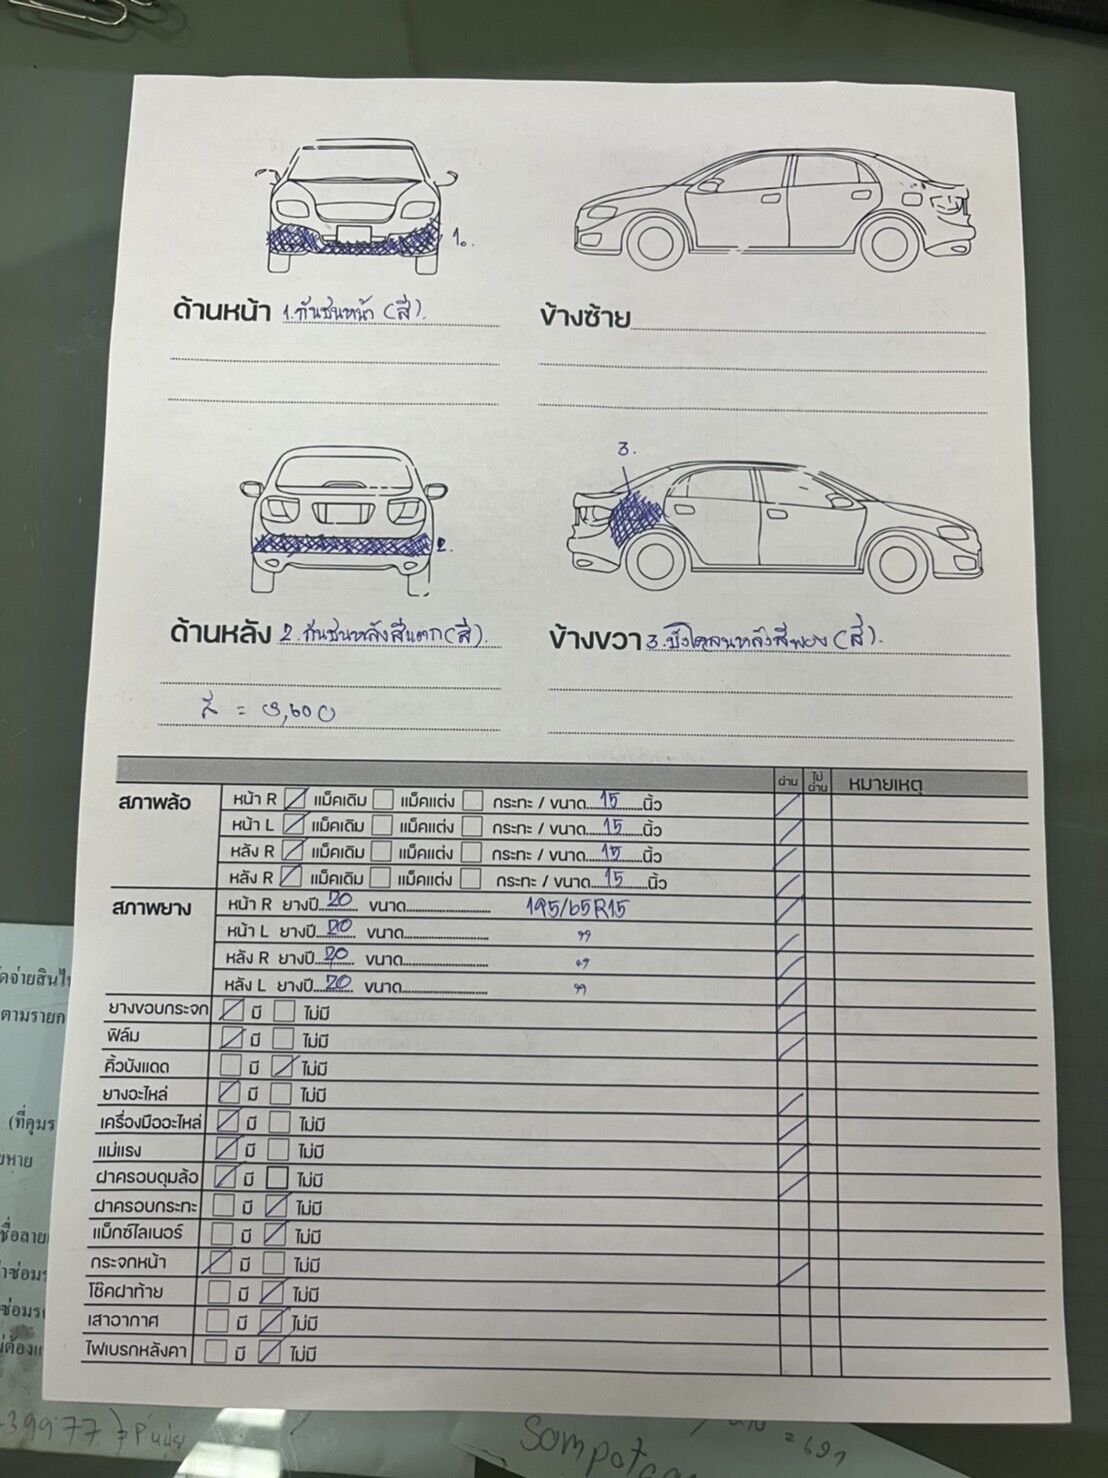 1.
ด้านหน้า 1.กันชนหน้า (สี).
ข้างซ้าย
3.
2.
ด้านหลัง 2.กันชนหลังสีแตก(สี).
ข้างขวา 3.บังโคลนหลังสีพอง(สี).
สี =
ผ่าน ไม่ผ่าน หมายเหตุ
สภาพล้อ หน้า R แม็คเดิม แม็คแต่ง กระทะ / ขนาด 15 นิ้ว
หน้า L แม็คเดิม แม็คแต่ง กระทะ / ขนาด 15 นิ้ว
หลัง R แม็คเดิม แม็คแต่ง กระทะ / ขนาด 15 นิ้ว
หลัง R แม็คเดิม แม็คแต่ง กระทะ / ขนาด 15 นิ้ว
สภาพยาง หน้า R ยางปี 20 ขนาด 195/65R15
หน้า L ยางปี 20 ขนาด "
หลัง R ยางปี 20 ขนาด "
หลัง L ยางปี 20 ขนาด "
ยางขอบกระจก มี ไม่มี
ฟิล์ม มี ไม่มี
คิ้วบังแดด มี ไม่มี
ยางอะไหล่ มี ไม่มี
เครื่องมืออะไหล่ มี ไม่มี
แม่แรง มี ไม่มี
ฝาครอบดุมล้อ มี ไม่มี
ฝาครอบกระทะ มี ไม่มี
แม็กซ์ไลเนอร์ มี ไม่มี
กระจกหน้า มี ไม่มี
โช๊คฝาท้าย มี ไม่มี
เสาอากาศ มี ไม่มี
ไฟเบรกหลังคา มี ไม่มี
ตามรายก
(ที่คุมร
39977